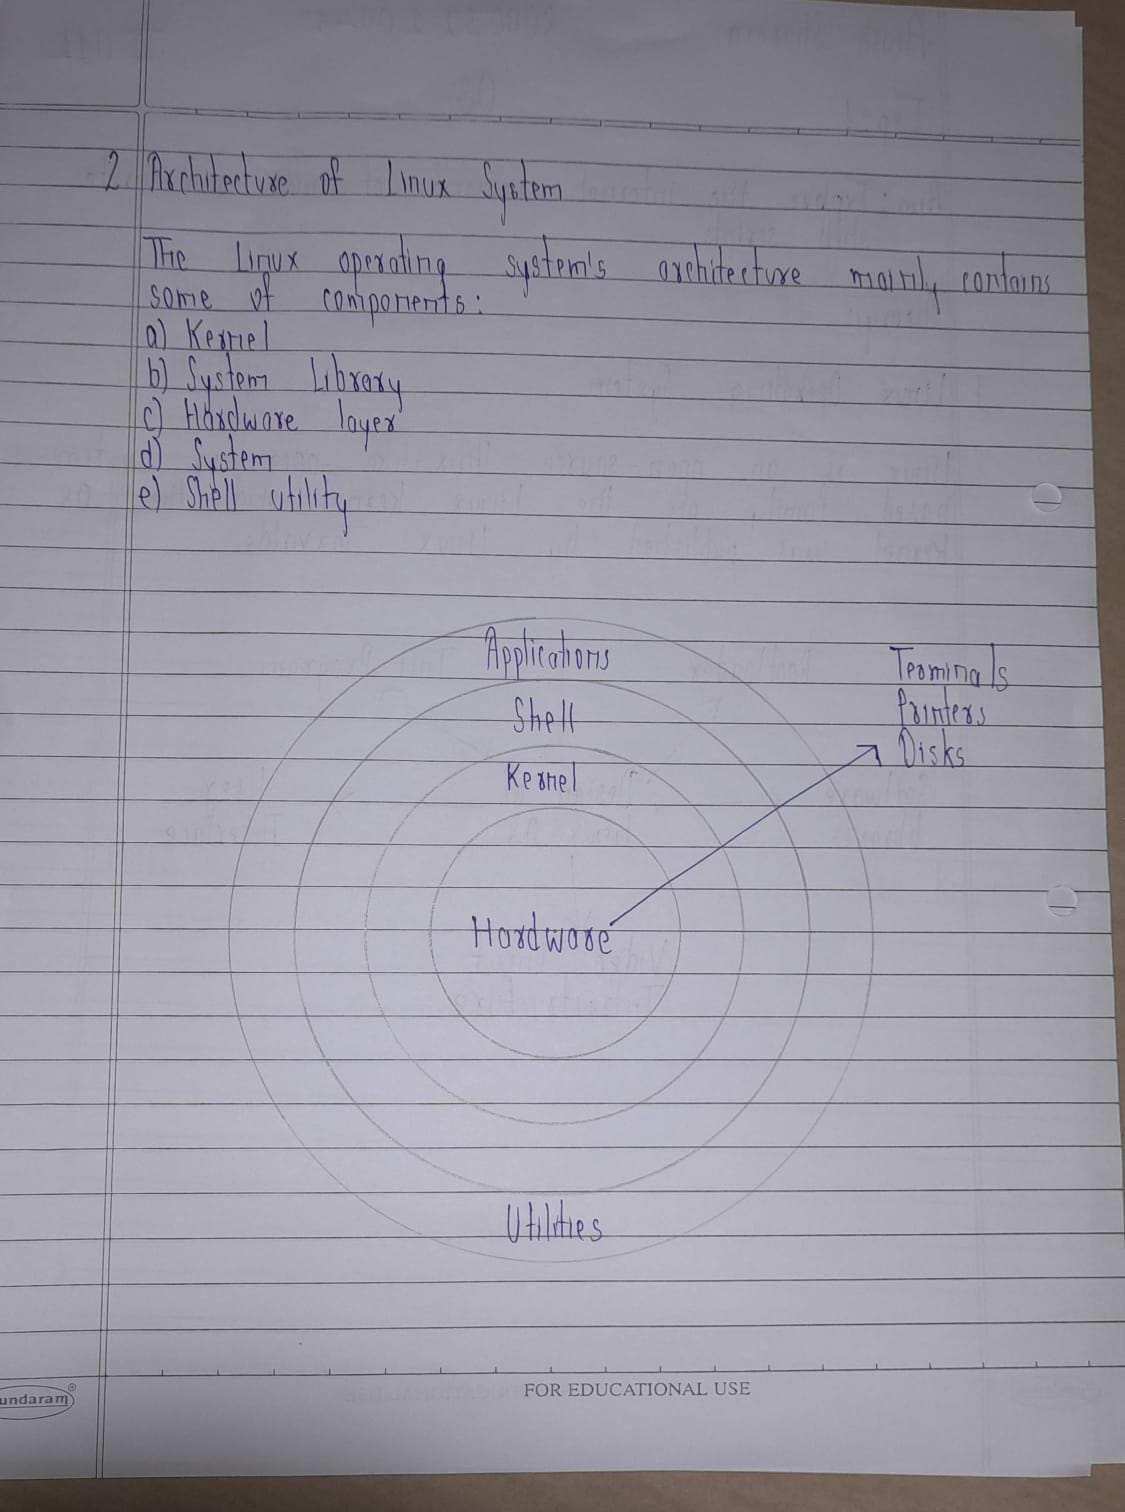 2 Architecture of Linux System
The Linux operating system's architecture mainly contains
some of components:
a) Kernel
b) System Library
c) Hardware layer
d) System
e) Shell utility
Applications
Shell
Kernel
Hardware
Terminals
Printers
Disks
Utilities
FOR EDUCATIONAL USE
undaram®